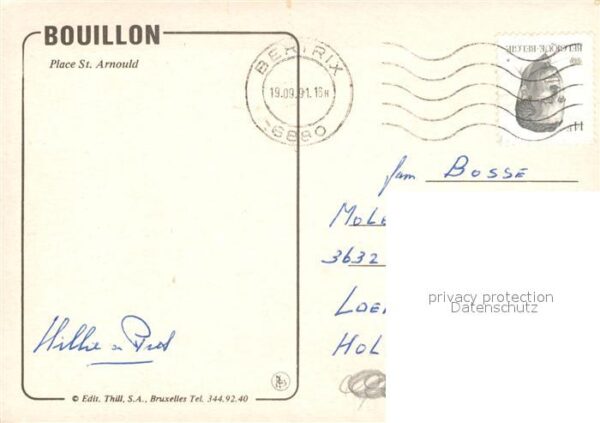 BOUILLON
Place St. Arnould
BERTRIX
19.09.91.16H
-6880
BELGIQUE-BELGIË
11F
fam BOSSE
MOLE
3632
LOE
HOL
privacy protection
Datenschutz
© Edit. Thill, S.A., Bruxelles Tel. 344.92.40